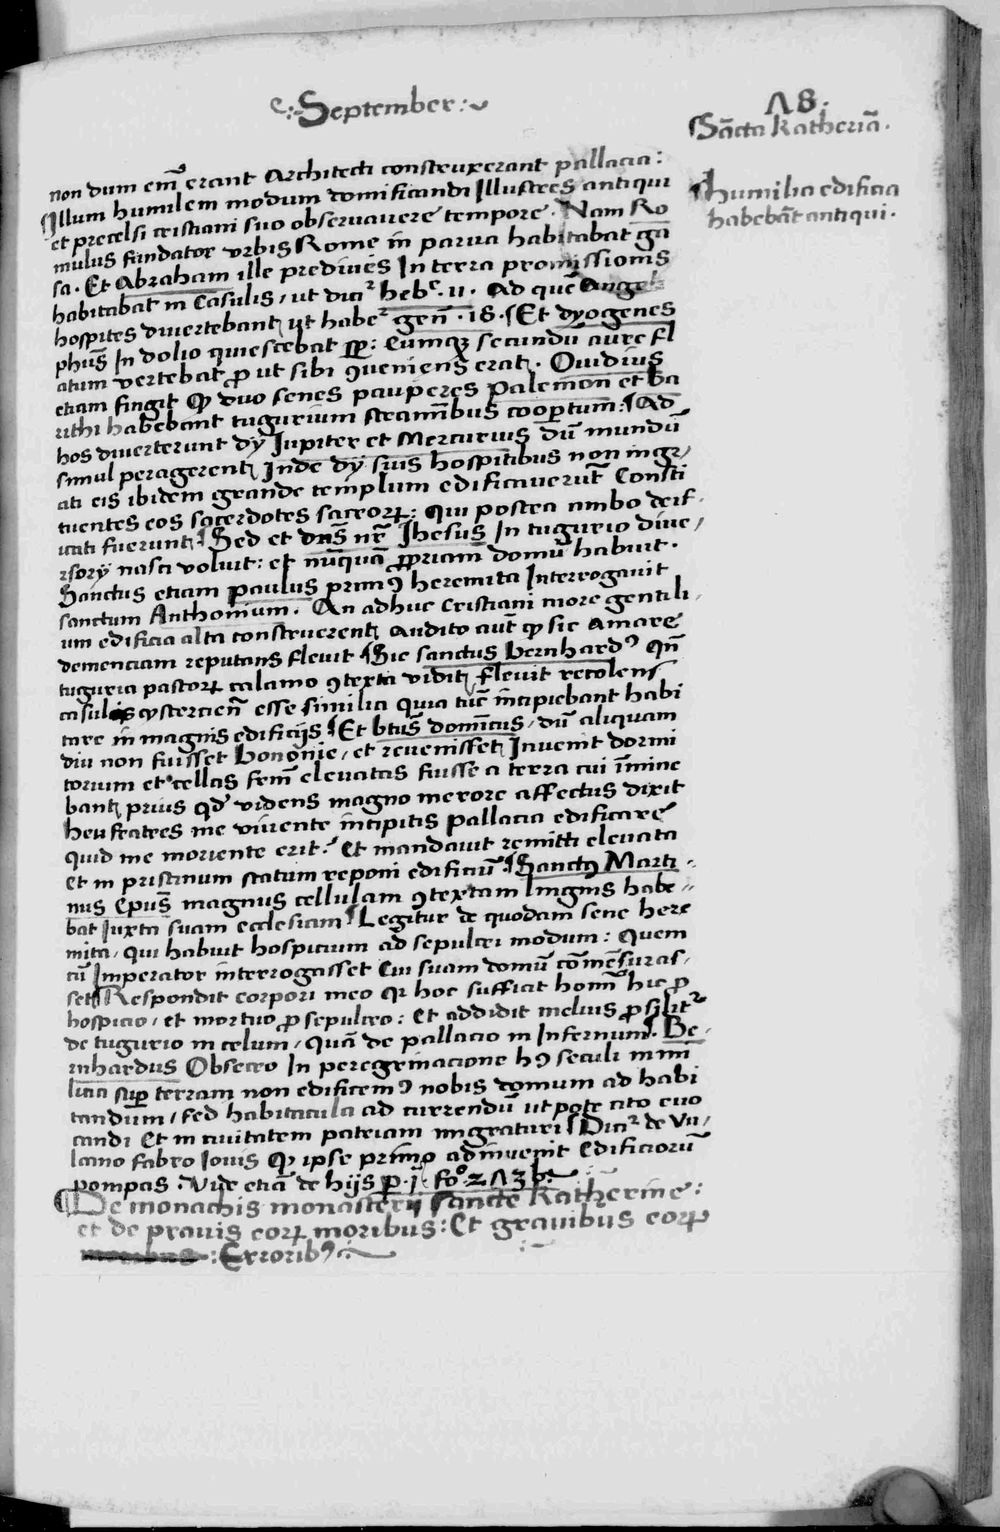 September:
Λ8.
¶Sācta Katherīa.
non dum em̄ erant Architecti construxerant pallacia:
¶Illum humilem modum domificandi Illustres antiqui
¶humilia edificia
et precelsi cristiani suo observavere tempore. Nam Ro
habebāt antiqui.
mulus fundator urbis Rome in parva habitabat ca
sa. Et Abraham ille predives In terra promissionis
habitabat in Casulis, ut dicr hebe. 11. Ad quē Angeli
hospites divertebant, ut haber gen̄. 18. ¶Et dyogenes
phūs In dolio quiescebat pp: Eumqz secundū aure fl
atum vertebat p ut sibi 9veniens erat. Ovidius
etiam fingit qp duo senes pauperes palemon et ba
ucthi habebant tugurium stramībus coopertum: ¶Ad
hos diverterunt dÿ Iupiter et Mercurius dū mundū
simul peragerent, Inde dÿ suis hospitibus non ingr,
ati eis ibidem grande templum edificaverūt Consti
tuentes eos sacerdotes sacror: Qui postea ambo deif.
icati fuerunt, ¶Sed et dns nr Jhesus In tugurio dive,
rsorÿ nasci voluit: et nūquā ppriam domū habuit.
Sanctus etiam paulus prim9 heremita Interrogavit
sanctum Anthonium. An adhuc Cristiani more gentili,
um edificia alta construerent, Audito aut qp sic Amare
demenciam reputans flevit ¶Sic sanctus Bernhard9 qn̄
tuguria pastor calamo 9texta vidit, flevit recolens
casulis cystercien̄ esse similia quia tūc incipiebant habi
tare in magnis edificijs ¶Et btūs domīcus, dū aliquam
diu non fuisset bononie, et revenisset, Invenit dormi
torium et cellas frm̄ elevatas fuisse a terra cui īmine
bant, prius qd videns magno merore affectus dixit
heu fratres me vivente incipitis pallacia edificare
quid me moriente erit? Et mandavit remitti elevata
et in pristinum statum reponi edificiū. ¶Sanct9 Marti
nus Epūs magnus cellulam 9textam lingnis habe
bat Iuxta suam ecclesiam ¶Legitur de quodam sene here
mita, qui habuit hospicium ad sepulcri modum: Quem
cū Imperator interrogasset Cui suam domū cōmēsuras,
set, Respondit corpori meo qr hoc sufficit homī hic p
hospicio, et mortuo p sepulcro: Et addidit melius p silitr
de tugurio in celum, quā de pallacio in Infernum ¶Be,
rnhardus Obsecro In peregrinacione h9 seculi in mi
licia sup terram non edificem9 nobis domum ad habi
tandum, sed habitacula ad currendū ut pote cito evo
candi Et in civitatem patriam migraturi ¶Dicr de Vu,
lcano fabro Iovis qp ipse primo adinvenit Edificiorū
pompas. Vide etiā de hijs p. j. fo. 2Λ3 b.
¶De monachis monasterij sancte Katherine:
et de pravis eor moribus: Et gravibus eor
: Errorib9: